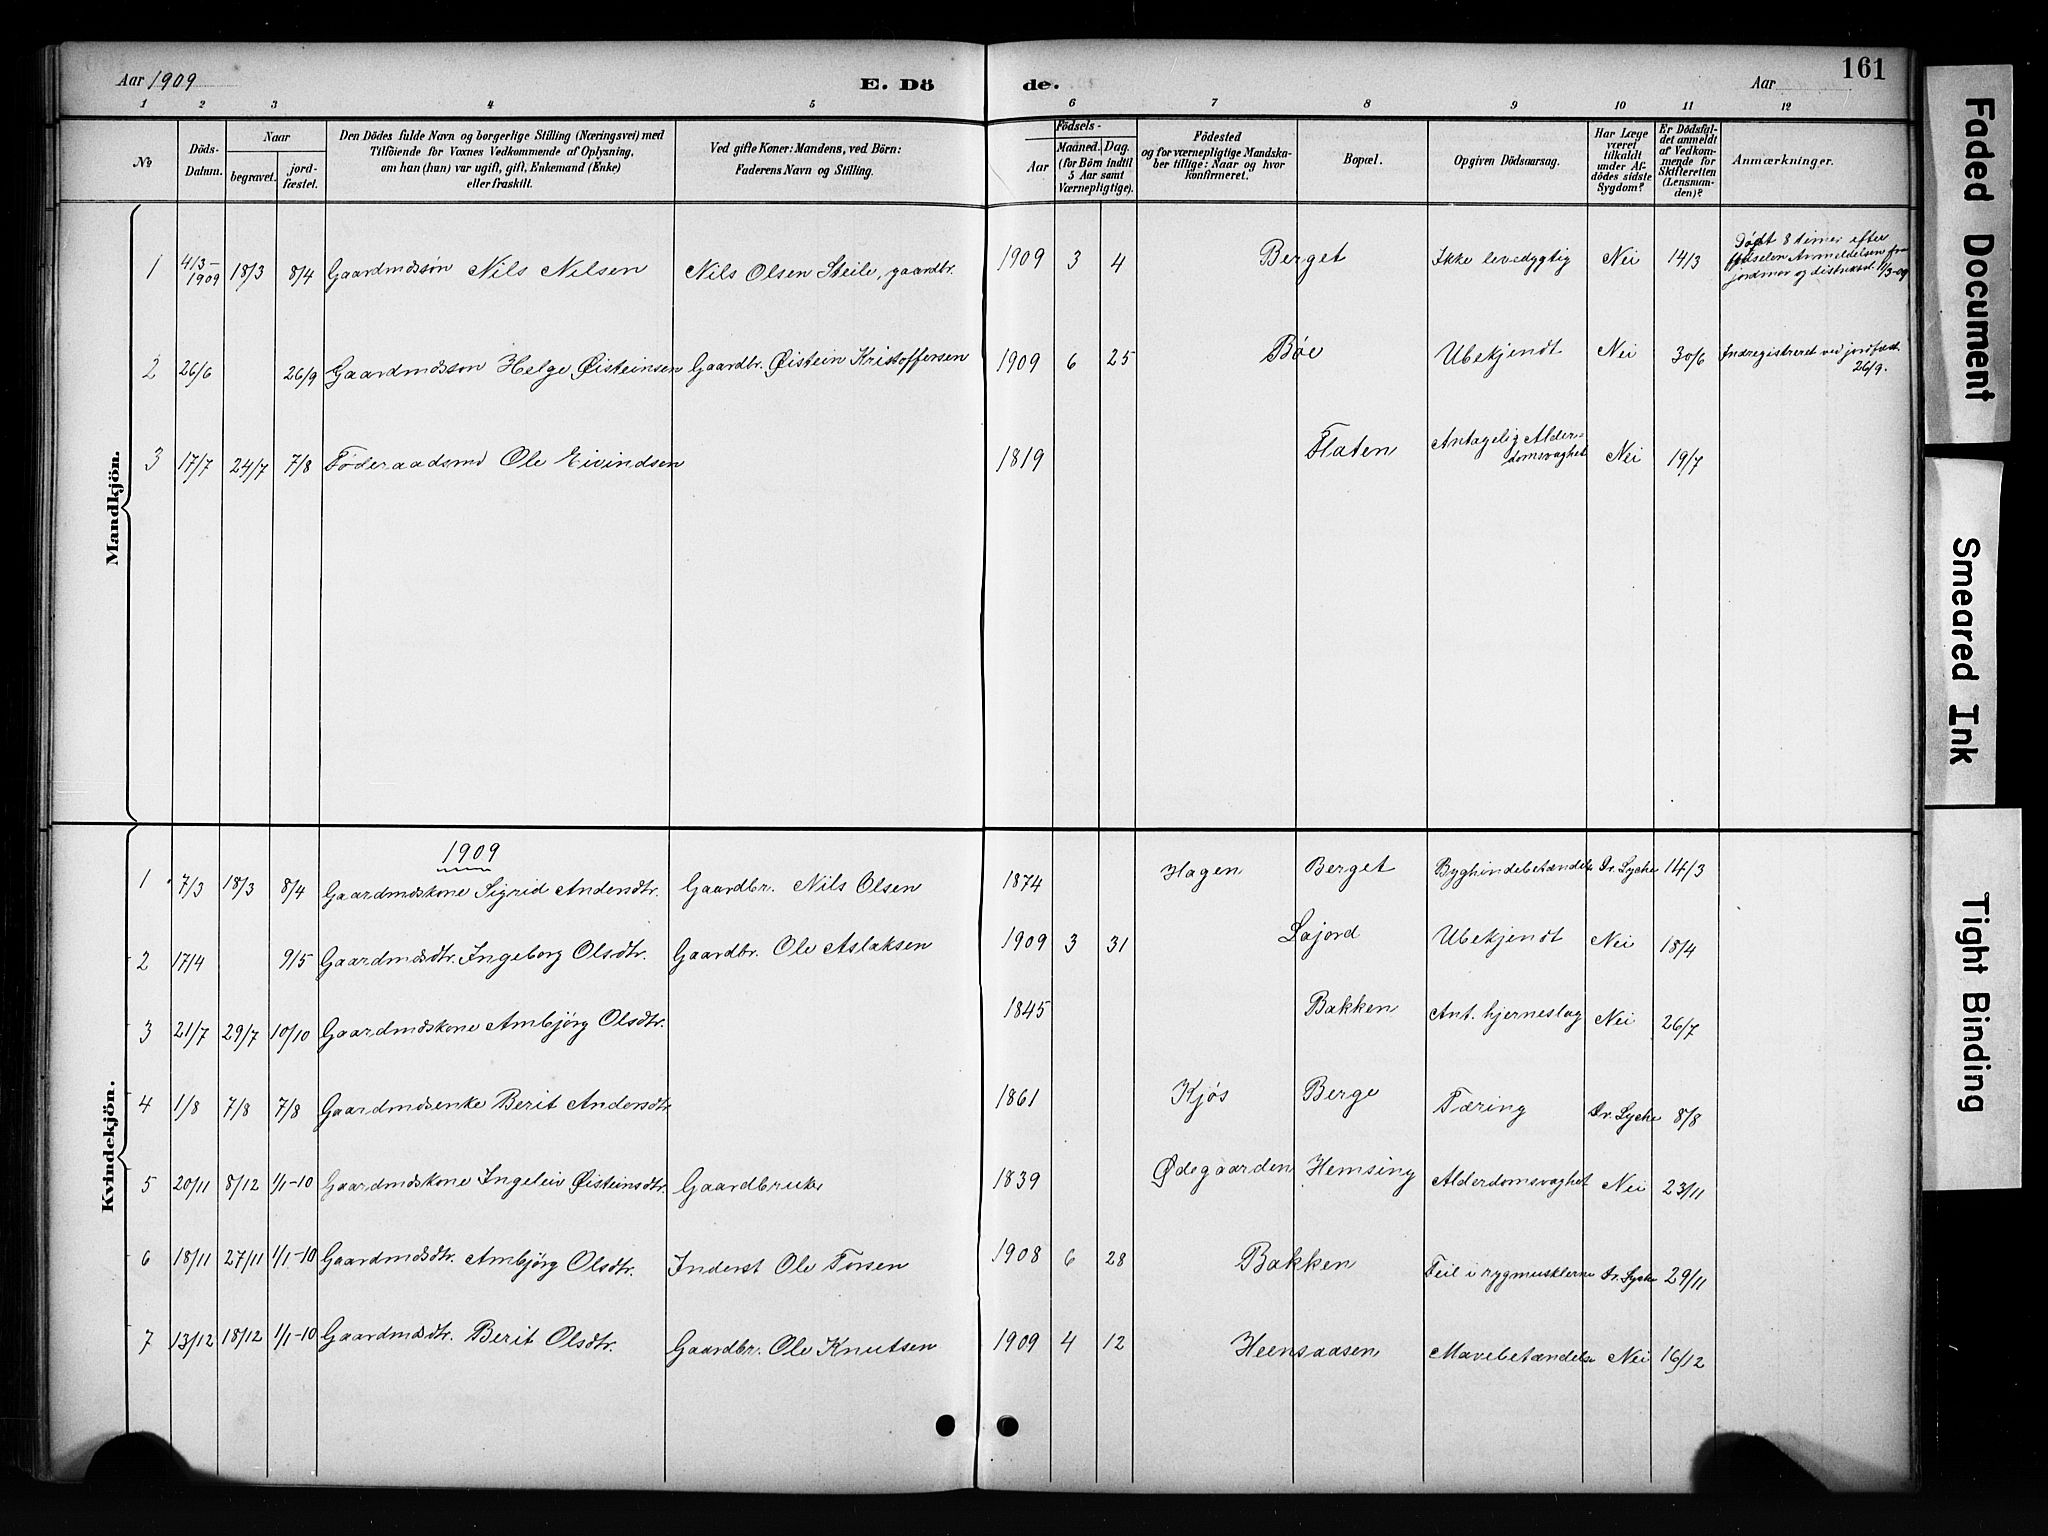 Aar 1909 E. Dö de. Aar 161
1 2 3 4 5 6 7 8 9 10 11 12
No
Döds-
Datum.
Naar
begravet.
jord-
fæstet.
Den Dödes fulde Navn og borgerlige Stilling (Næringsvei) med
Tilföiende for Voxnes Vedkommende af Oplysning,
om han (hun) var ugift, gift, Enkemand (Enke)
eller fraskilt.
Ved gifte Koner: Mandens, ved Börn:
Faderens Navn og Stilling.
Födsels-
Aar
Maaned. Dag.
(for Börn indtil
5 Aar samt
Værnepligtige).
Födested
og for værnepligtige Mandska-
ber tillige: Naar og hvor
konfirmeret.
Bopæl.
Opgiven Dödsaarsag.
Har Læge
været
tilkaldt
under Af-
dödes sidste
Sygdom?
Er Dödsfal-
det anmeldt
af Vedkom-
mende for
Skifteretten
(Lensman-
den)?
Anmærkninger.
Mandkjön.
1 4/3-1909 18/3 8/4 Gaardmdssøn Nils Nilsen Nils Olsen Steile, gaardbr. 1909 3 4 Berget Ikke levedygtig Nei 14/3
Født 8 timer efter
fødselen Anmeldelsen fra
jordmor og 11/3-09
2 26/6 26/9 Gaardmdssøn Helge Øisteinsen Gaardbr. Øistein Kristoffersen 1909 6 25 Bøe Ubekjendt Nei 30/6 Indregistreret ved jordfæst.
26/9.
3 17/7 24/7 7/8 Føderaadsmd Ole Eivindsen 1819 Flaten Antagelig Alder-
domsvaghet Nei 19/7
Kvindekjön.
1909
1 7/3 18/3 8/4 Gaardmdskone Sigrid Andersdtr. Gaardbr. Nils Olsen 1874 Hagen Berget Byghindebetændelse Dr. Lyche 14/3
2 17/4 9/5 Gaardmdsdtr. Ingeborg Olsdtr. Gaardbr. Ole Aslaksen 1909 3 31 Lajord Ubekjendt Nei 18/4
3 21/7 29/7 10/10 Gaardmdskone Ambjørg Olsdtr. 1845 Bakken Ant. hjerneslag Nei 26/7
4 1/8 7/8 7/8 Gaardmdsenke Berit Andersdtr 1861 Kjøs Berge Tæring Dr. Lyche 8/8
5 20/11 8/12 1/1-10 Gaardmdskone Ingeleiv Øisteinsdtr. Gaardbruker 1839 Ødegaarden Hemsing Alderdomsvaghet Nei 23/11
6 18/11 27/11 1/1-10 Gaardmdsdtr. Ambjørg Olsdtr. Inderst Ole Torsen 1908 6 28 Bakken Feil i rygmusklerne Dr. Lyche 29/11
7 13/12 18/12 1/1-10 Gaardmdsdtr. Berit Olsdtr. Gaardbr. Ole Knutsen 1909 4 12 Heensaasen Mavebetændelse Nei 16/12
Faded Document
Smeared Ink
Tight Binding